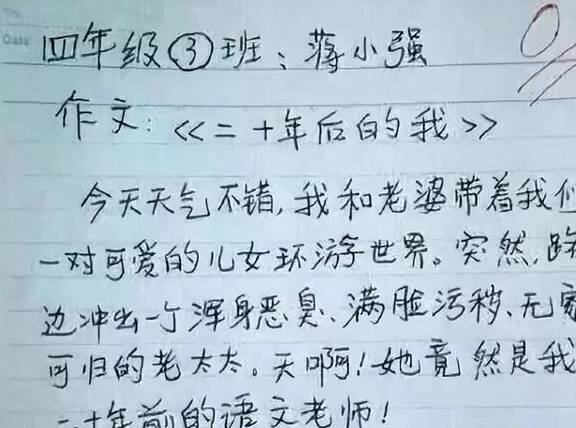 四年级③班：薄小强
作文：<<二十年后的我>>
今天天气不错，我和老婆带着我们
一对可爱的儿女环游世界。突然，路
边冲出一个浑身恶臭、满脸污秽、无家
可归的老太太。天啊！她竟然是我
二十年前的语文老师！
0